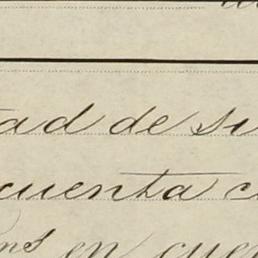 tad de su
cuenta c
en cuen